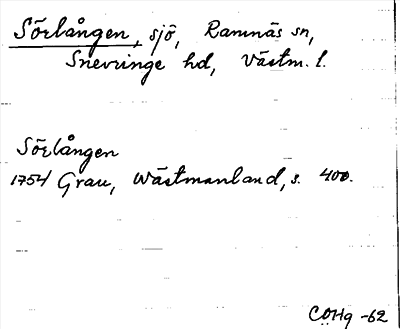 Sörlången, sjö, Ramnäs sn,
Snevringe hd, Västm. l.
Sörlången
1754 Grau, Wästmanland, s. 400.
CÖHg -62